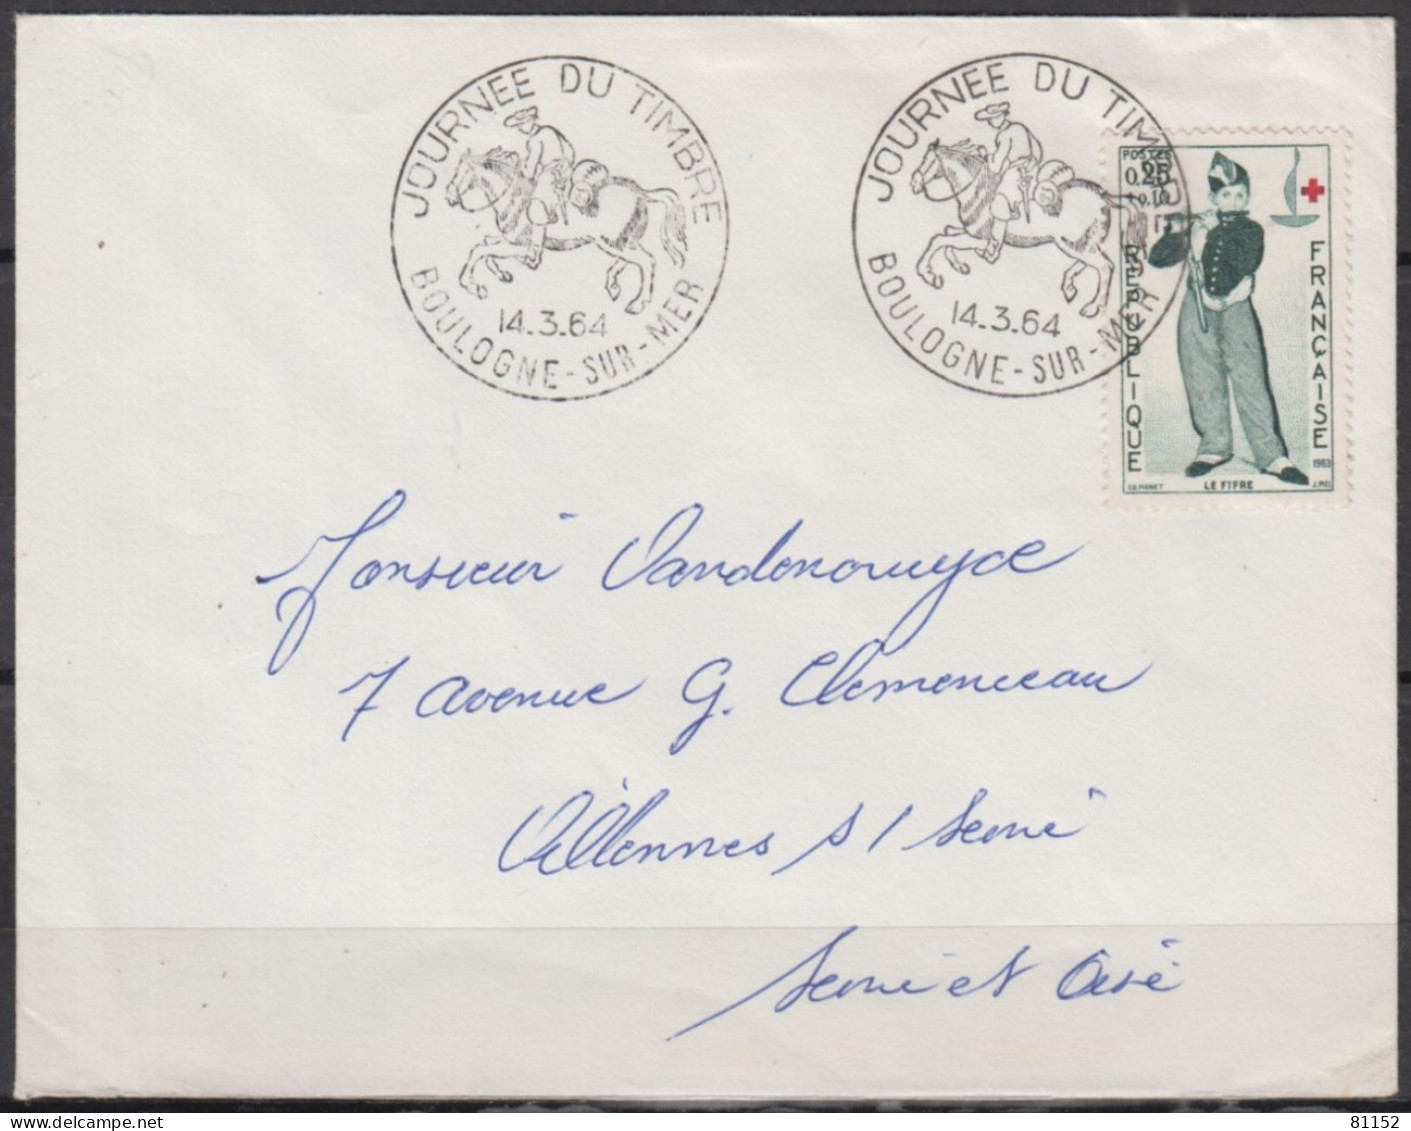 JOURNEE DU TIMBRE
14.3.64
BOULOGNE-SUR-MER
JOURNEE DU TIMBRE
14.3.64
BOULOGNE-SUR-MER
POSTES
0,25
+0,10
RÉPUBLIQUE
FRANÇAISE
1963
ED. MANET LE FIFRE J. PIEL
Monsieur
7 avenue G. Clemenceau
Villennes s/ Seine
Seine et Oise
81152